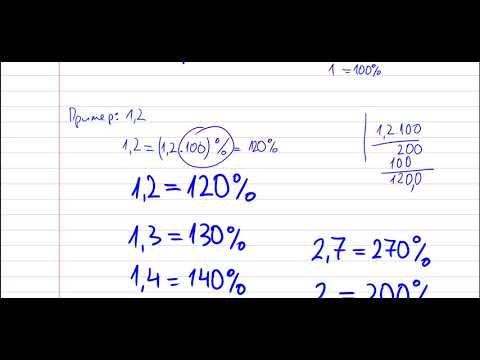 1 = 100%
Пример: 1,2
1,2 = (1,2·100)% = 120%
1,2 100
200
100
120,0
1,2 = 120%
1,3 = 130%
1,4 = 140%
2,7 = 270%
2 = 200%